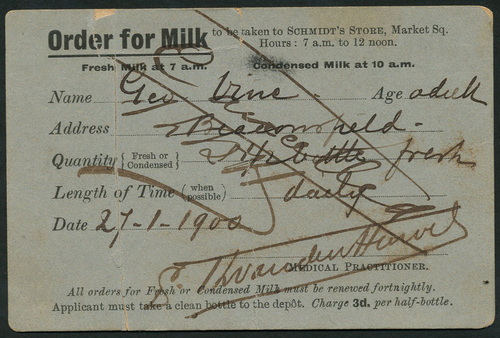 Order for Milk to be taken to SCHMIDT'S STORE, Market Sq.
Hours : 7 a.m. to 12 noon.
Fresh Milk at 7 a.m. Condensed Milk at 10 a.m.
Name Geo Age adult
Address Beaconsfield -
Quantity { Fresh or Condensed } bottle fresh
Length of Time (when possible) daily
Date 27-1-1900
MEDICAL PRACTITIONER.
All orders for Fresh or Condensed Milk must be renewed fortnightly.
Applicant must take a clean bottle to the depôt. Charge 3d. per half-bottle.